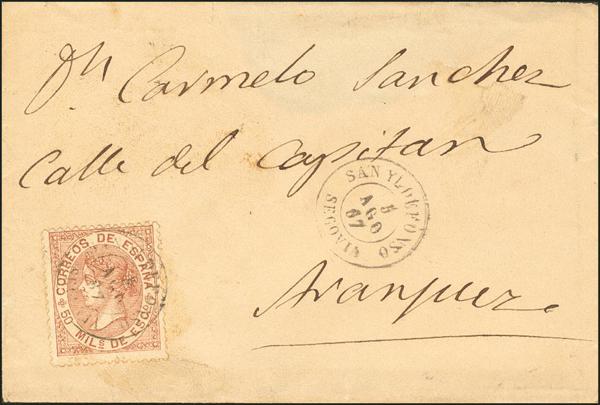 Carmelo Sanchez
Calle del Capitan
SAN YLDEFONSO
5
AGO
67
SEGOVIA
Aranjuez
CORREOS DE ESPAÑA
50 MILS DE ESCDO